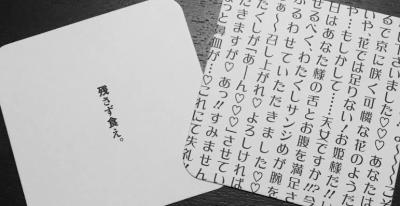 残さず食え。
し下さいまし
る で京に咲く可憐な花のようだ
いや、花では足りない!お姫様だ!!
や…もしかして……天女ですか!?今
日はあなた様の舌とお腹を満足さ
せるべく、わたくしサンジめが腕を
ふるわせていただきました♡♡
あ〜召し上がれ♡よろしければ
たくしが「あーん♡♡♡」させてい
だきますが♡あっ!!すみません
っと鼻血が…♡これにて失礼